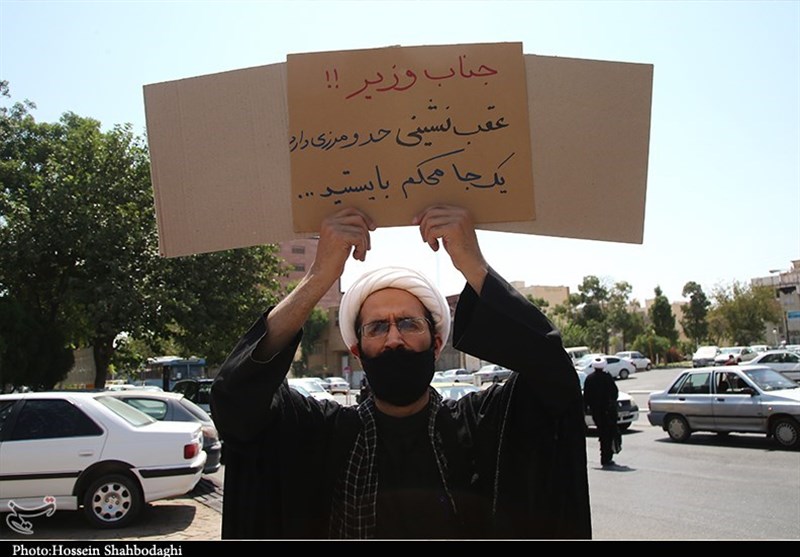 جناب وزیر !!
عقب نشینی حد و مرزی دارد
یک جا محکم بایستید ...
تسنیم
Photo:Hossein Shahbodaghi